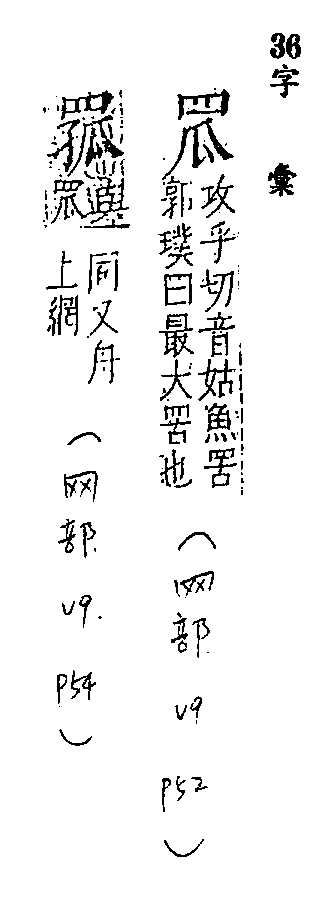 36
字彙
罛 攻乎切音姑魚罟
郭璞曰最大罟也
(网部 v9 p52)
罛 與罛
同又舟
上網
(网部 v9. p54)